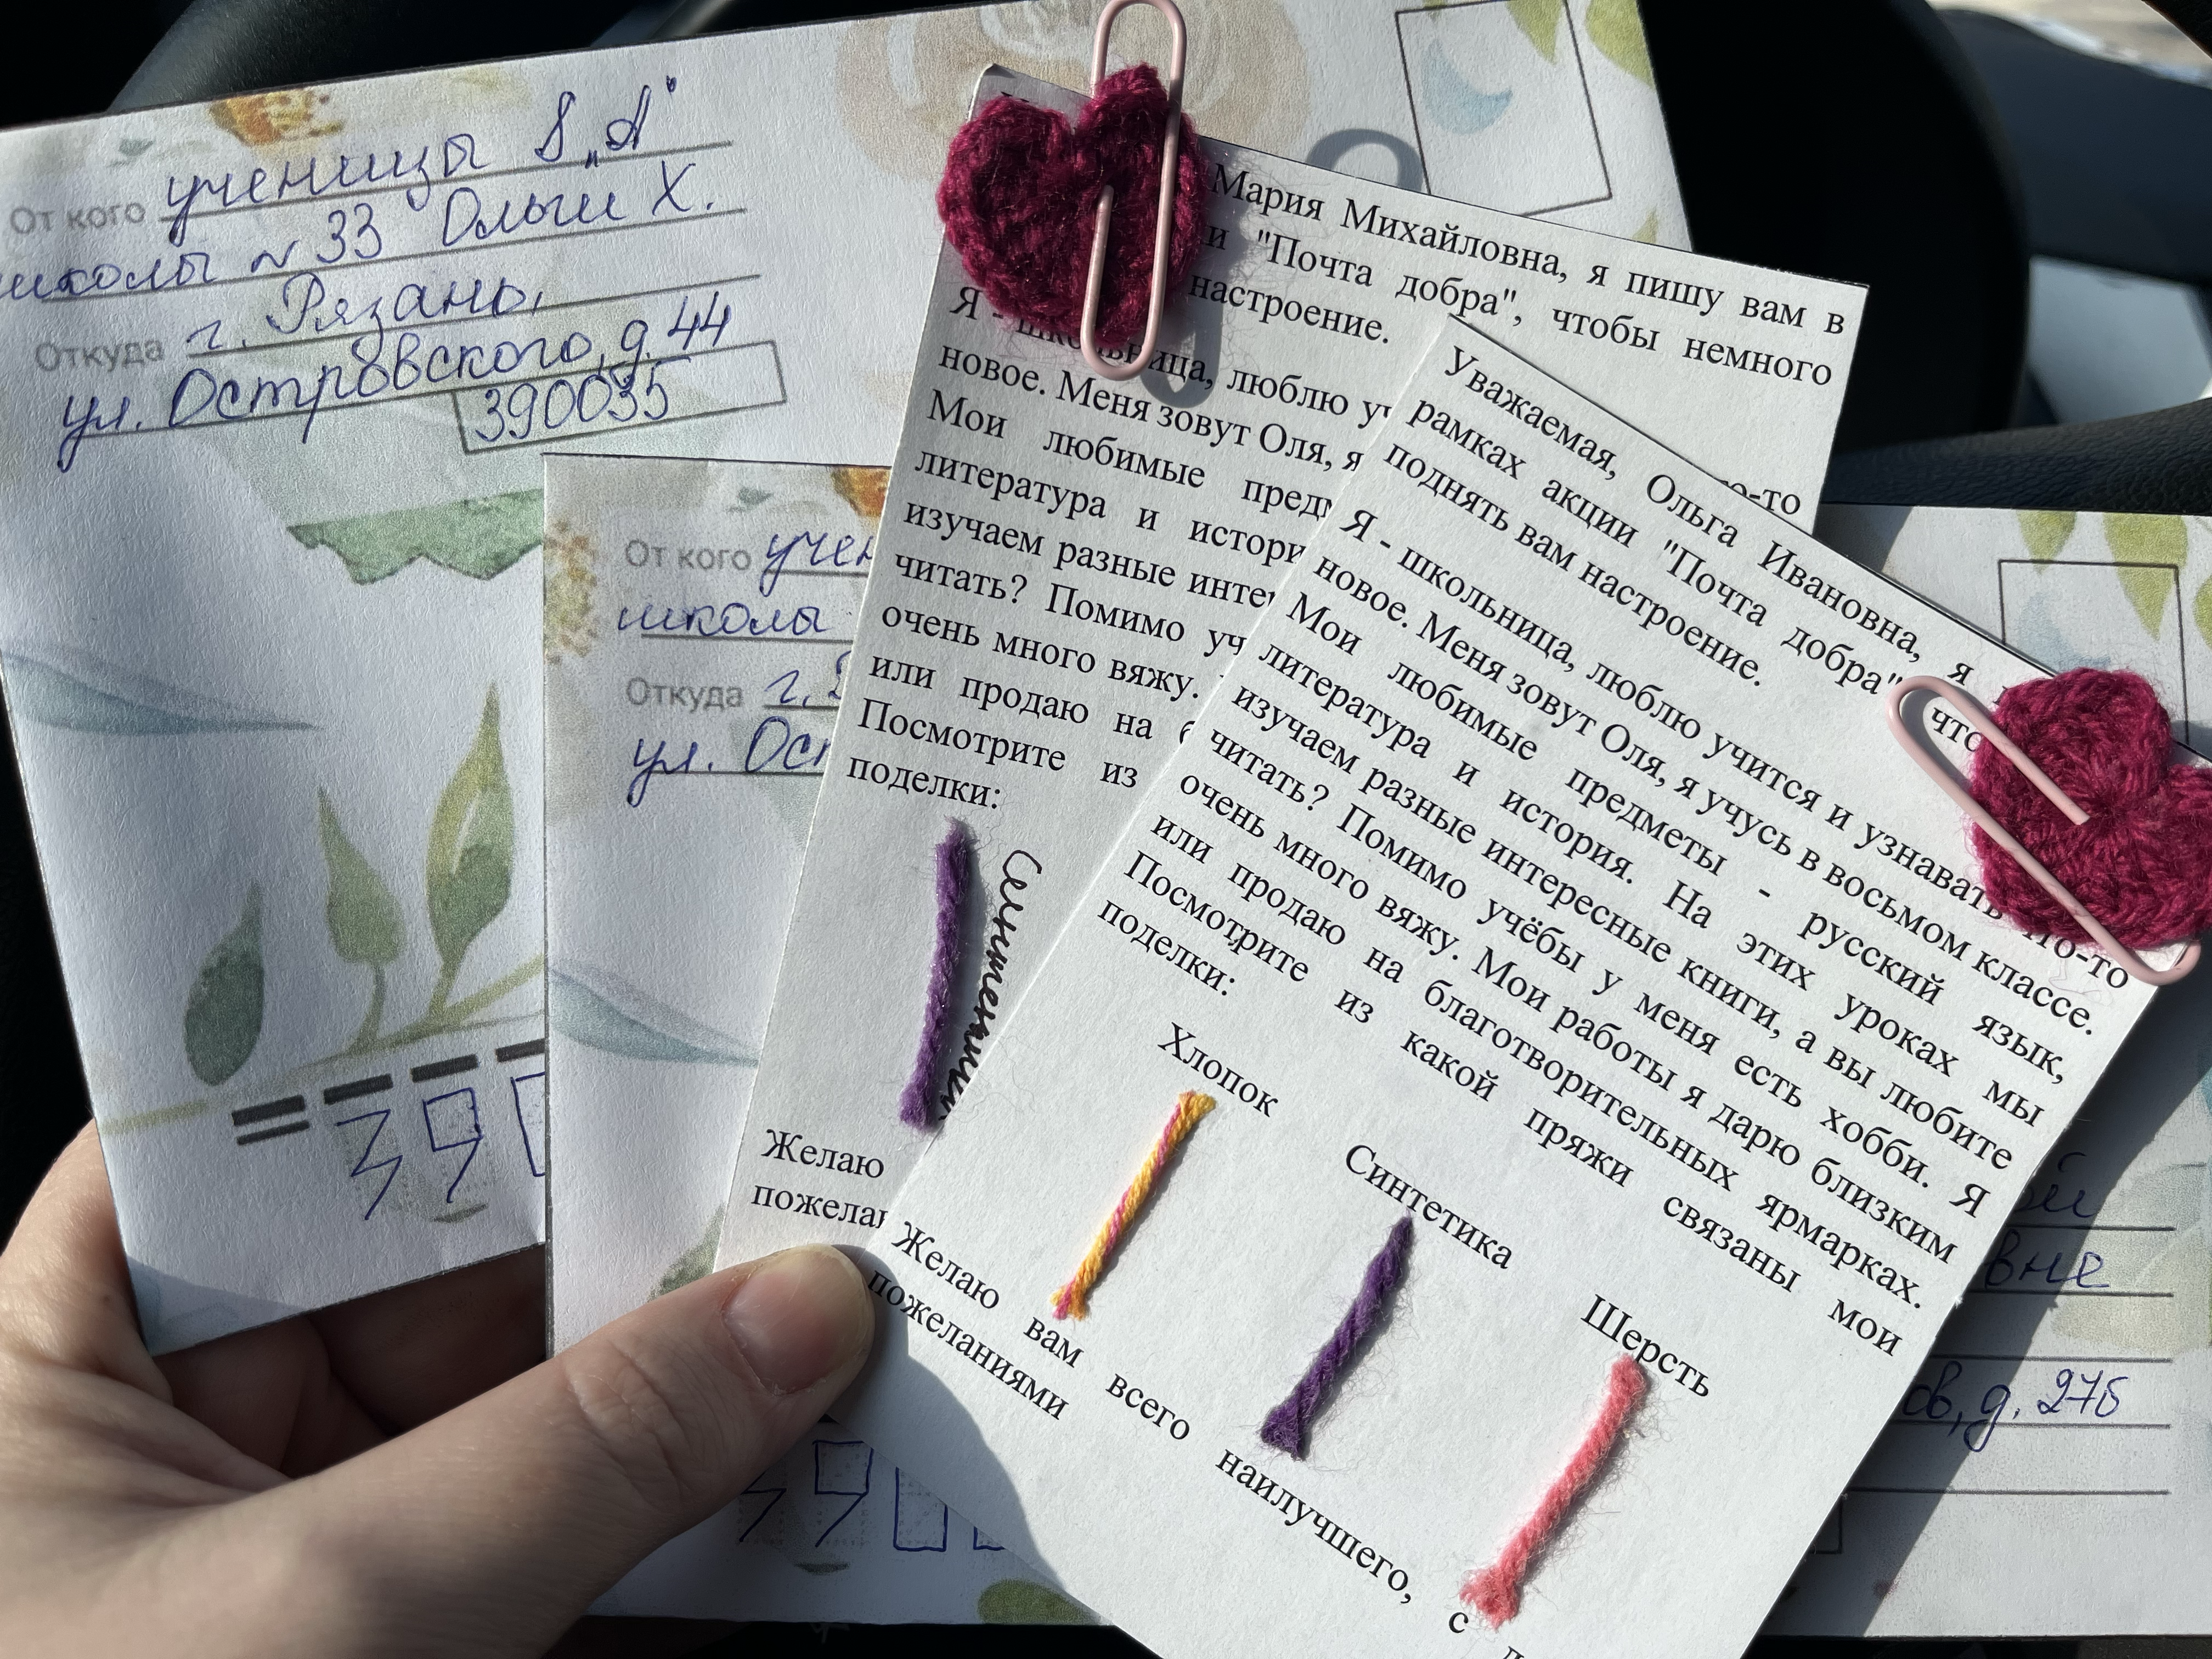 От кого ученицы 8 „А"
школы № 33 Ольги Х.
Откуда г. Рязань,
ул. Островского, д. 44
390035
390
От кого учен
школы
Откуда г.
ул. Ост
390
Мария Михайловна, я пишу вам в
и "Почта добра", чтобы немного
настроение.
Я - школьница, люблю уч
новое. Меня зовут Оля, я
Мои любимые предм
литература и истори
изучаем разные инте
читать? Помимо уч
очень много вяжу.
или продаю на б
Посмотрите из
поделки:
Желаю
пожела
о-то
Уважаемая, Ольга Ивановна, я
рамках акции "Почта добра", что
поднять вам настроение.
Я - школьница, люблю учится и узнавать что-то
новое. Меня зовут Оля, я учусь в восьмом классе.
Мои любимые предметы - русский язык,
литература и история. На этих уроках мы
изучаем разные интересные книги, а вы любите
читать? Помимо учёбы у меня есть хобби. Я
очень много вяжу. Мои работы я дарю близким
или продаю на благотворительных ярмарках.
Посмотрите из какой пряжи связаны мои
поделки:
Хлопок
Синтетика
Шерсть
Желаю вам всего наилучшего, с
пожеланиями
ой
вне
ов, д. 27б